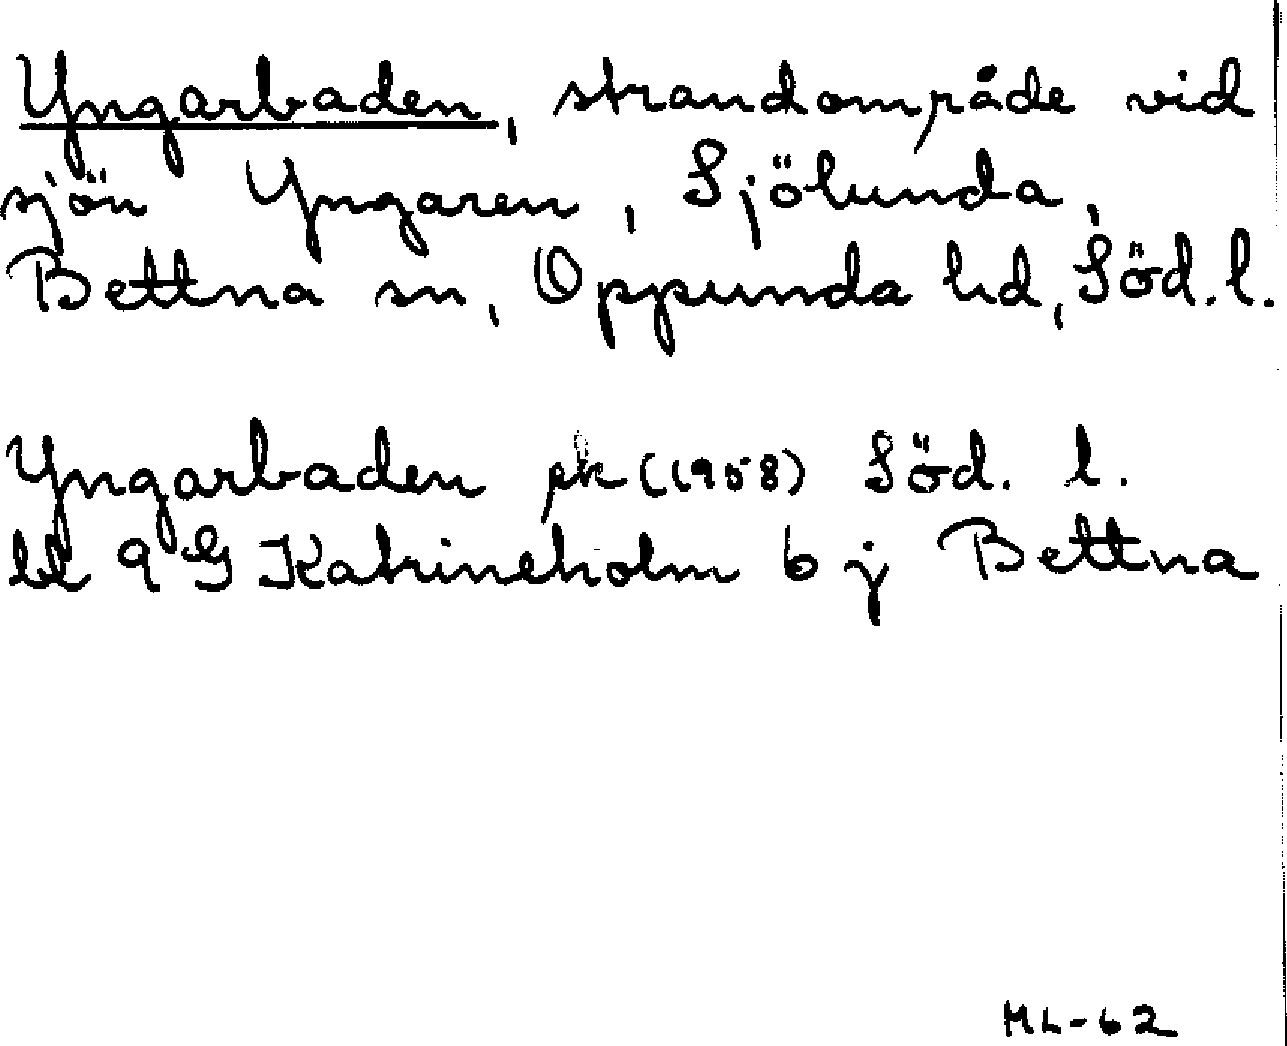 Yngarbaden, strandområde vid
sjön Yngaren, Sjölunda,
Bettna sn, Oppunda hd, Söd. l.
Yngarbaden pk (1958) Söd. l.
bl 9 G Katrineholm 6 j Bettna
ML-62